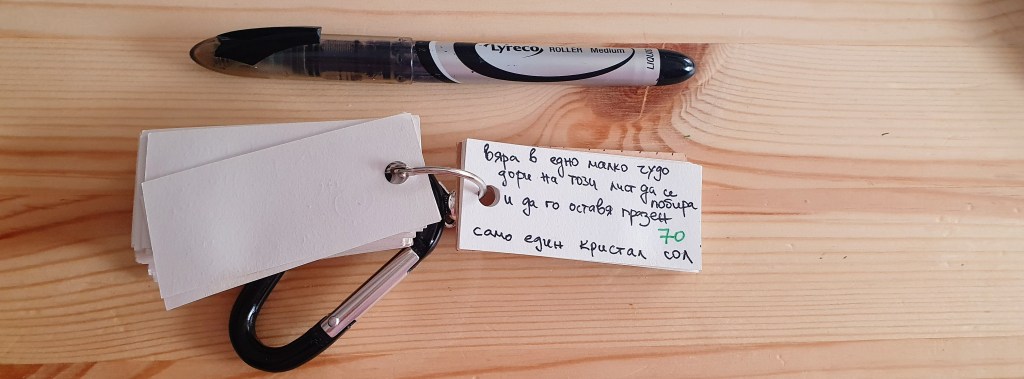 Lyreco ROLLER Medium
LIQUID
вяра в едно малко чудо
дори на този лист да се
побира
и да го оставя празен
70
само един кристал сол